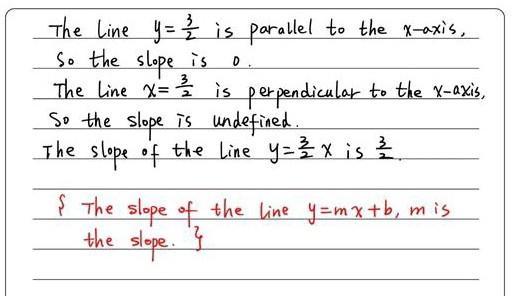 The line y=3/2 is parallel to the x-axis,
So the slope is 0.
The line x=3/2 is perpendicular to the x-axis,
So the slope is undefined.
The slope of the line y=3/2 x is 3/2.
{ The slope of the line y=mx+b, m is
the slope. }